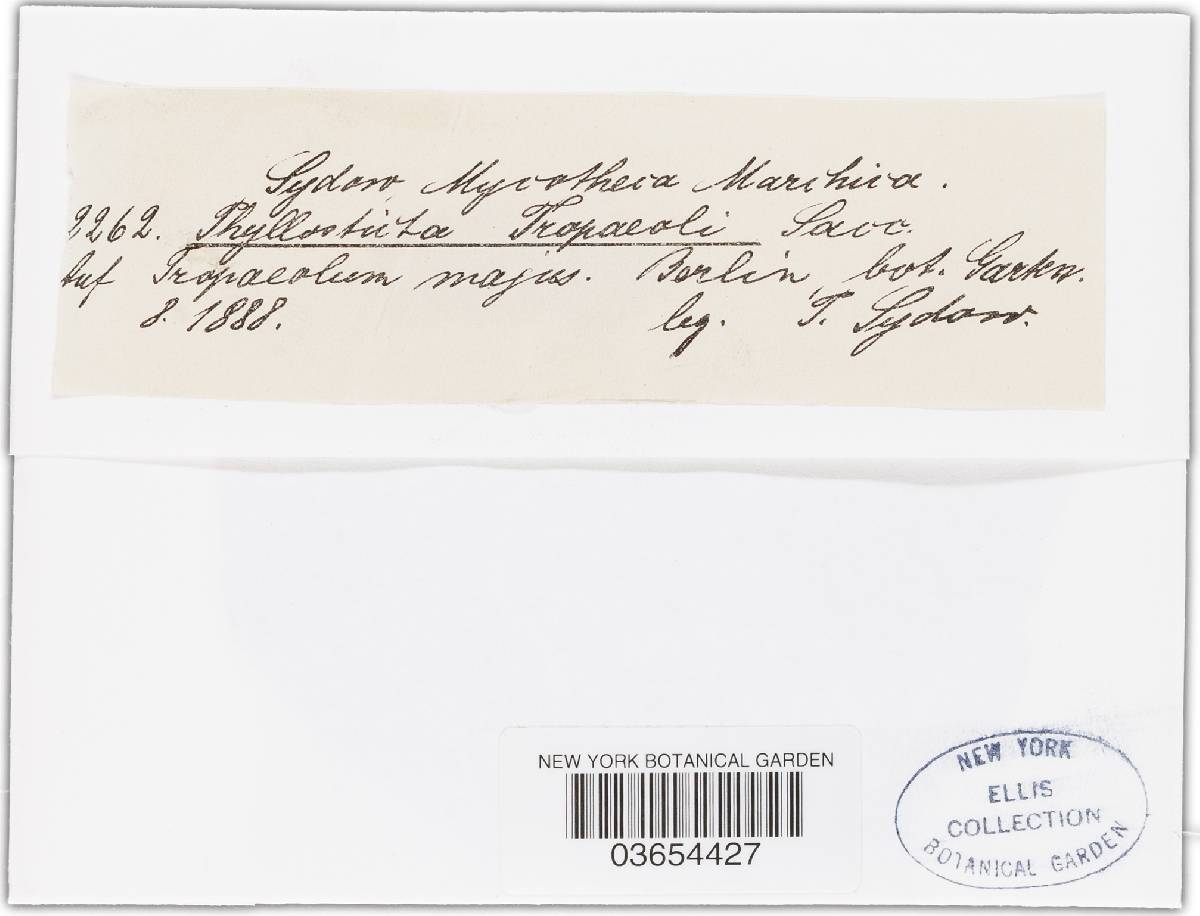 Sydow, Mycotheca Marchica.
2262. Phyllosticta Tropaeoli Sacc.
Auf Tropaeolum majus. Berlin, bot. Garten.
8. 1888. leg. P. Sydow.
NEW YORK BOTANICAL GARDEN
03654427
NEW YORK
ELLIS
COLLECTION
BOTANICAL GARDEN